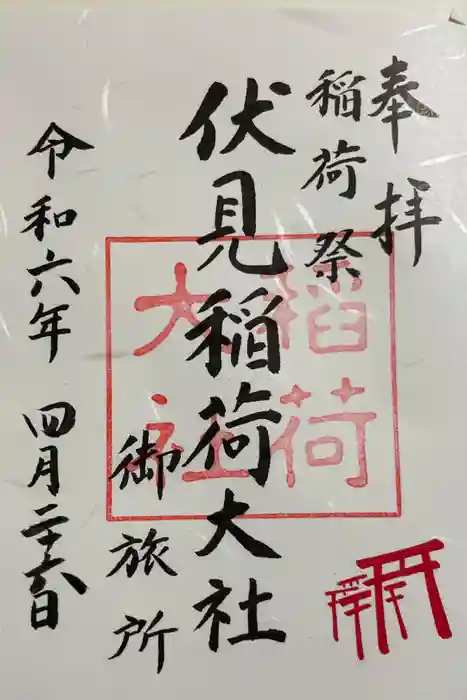 奉拝
稲荷祭
伏見稲荷大社
御旅所
令和六年 四月二十六日
稲荷
大社